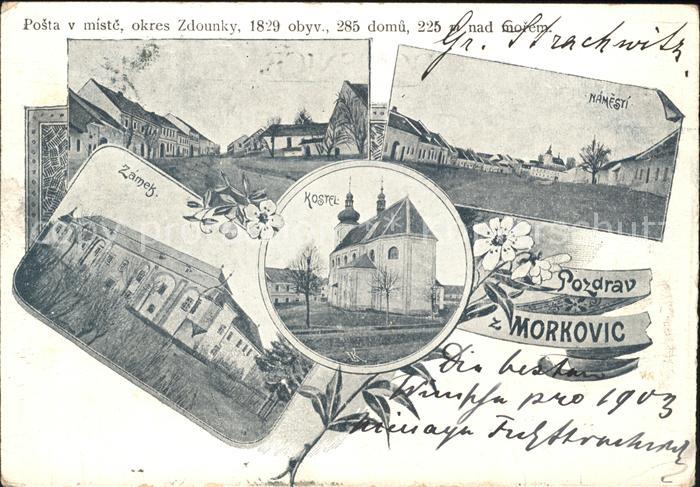 Pošta v místě, okres Zdounky, 1829 obyv., 285 domů, 225 m nad mořem.
Gr. Strachwitz.
NÁMĚSTÍ
Zámek.
KOSTEL
Pozdrav
z MORKOVIC
Die besten
pro 1903